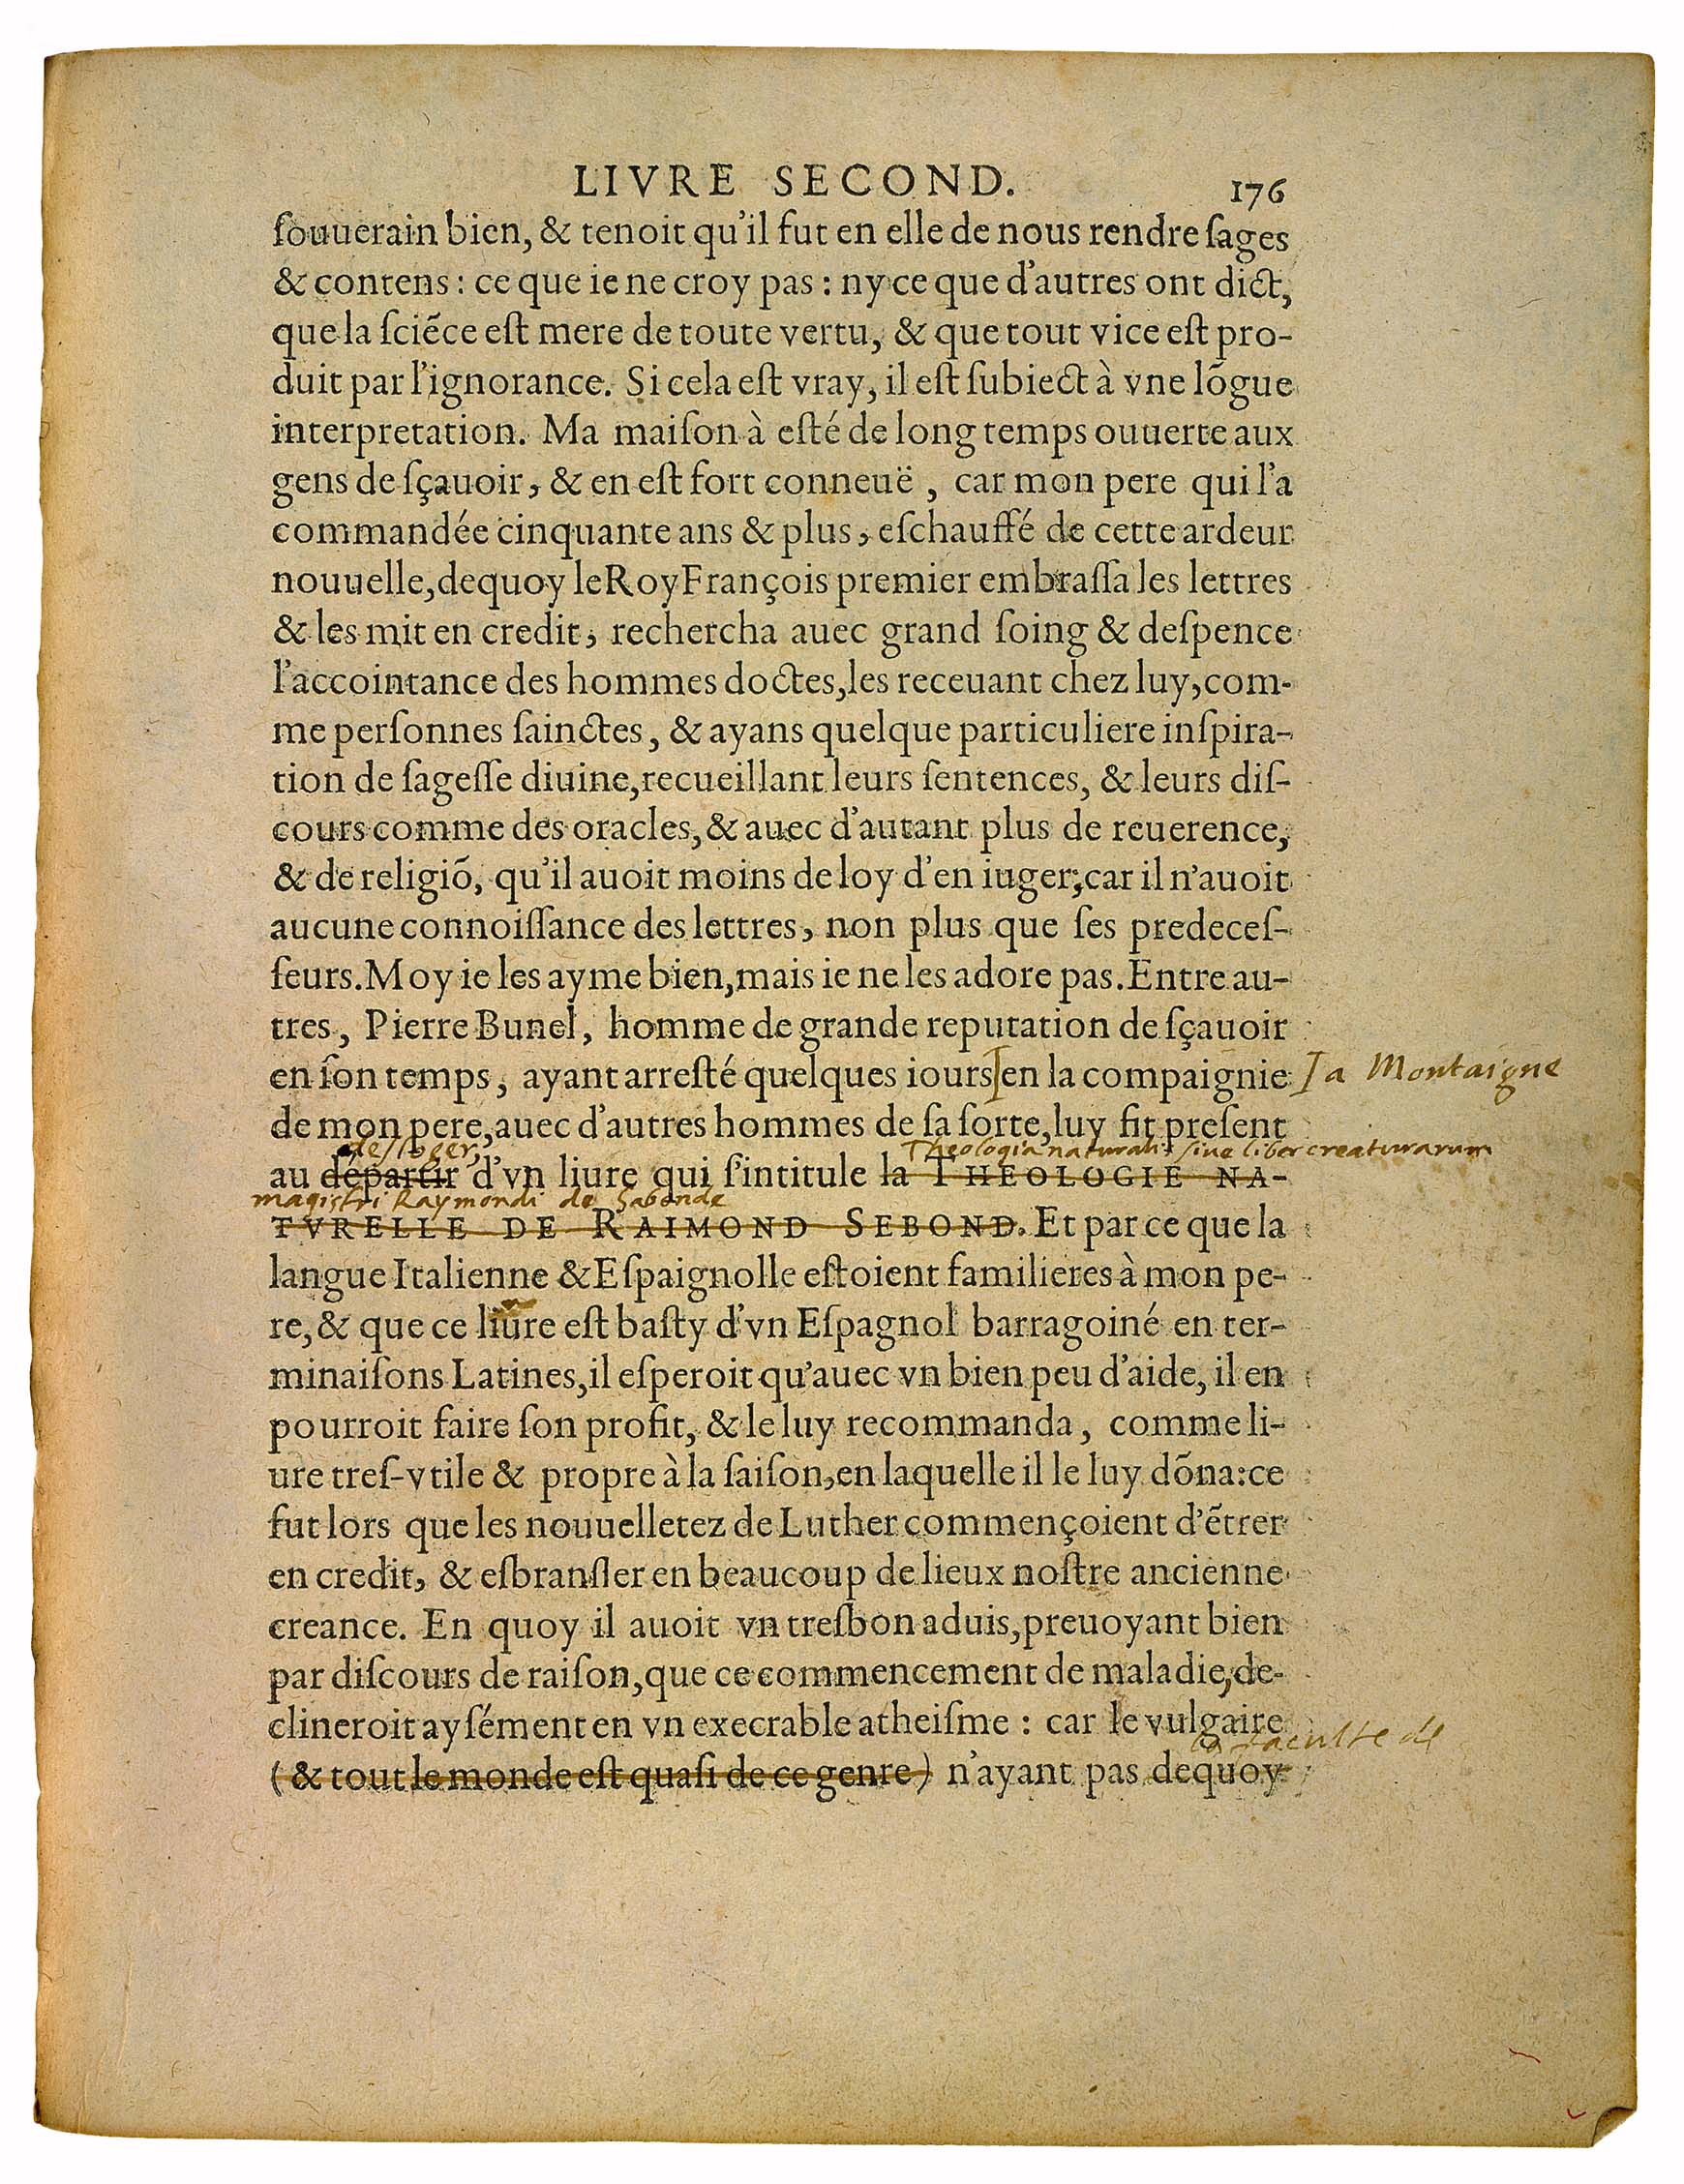 LIVRE SECOND. 176
ſouuerain bien, & tenoit qu'il fut en elle de nous rendre ſages
& contens : ce que ie ne croy pas : ny ce que d'autres ont dict,
que la ſciẽce eſt mere de toute vertu, & que tout vice eſt pro-
duit par l'ignorance. Si cela eſt vray, il eſt ſubiect à vne lõgue
interpretation. Ma maiſon à eſté de long temps ouuerte aux
gens de ſçauoir, & en eſt fort conneuë, car mon pere qui l'a
commandée cinquante ans & plus, eſchauffé de cette ardeur
nouuelle, dequoy le Roy François premier embraſſa les lettres
& les mit en credit, rechercha auec grand ſoing & deſpence
l'accointance des hommes doctes, les receuant chez luy, com-
me perſonnes ſainctes, & ayans quelque particuliere inſpira-
tion de ſageſſe diuine, recueillant leurs ſentences, & leurs diſ-
cours comme des oracles, & auec d'autant plus de reuerence,
& de religiõ, qu'il auoit moins de loy d'en iuger; car il n'auoit
aucune connoiſſance des lettres, non plus que ſes predeceſ-
ſeurs. Moy ie les ayme bien, mais ie ne les adore pas. Entre au-
tres, Pierre Bunel, homme de grande reputation de ſçauoir
en ſon temps, ayant arreſté quelques iours en la compaignie a Montaigne
de mon pere, auec d'autres hommes de ſa ſorte, luy fit preſent
desloger, Theologia naturalis siue liber creaturarum
au départir d'vn liure qui ſ'intitule la THEOLOGIE NA-
magistri Raymondi de Sabonde
TVRELLE DE RAIMOND SEBOND. Et par ce que la
langue Italienne & Eſpaignolle eſtoient familieres à mon pe-
re, & que ce liure eſt baſty d'vn Eſpagnol barragoiné en ter-
minaiſons Latines, il eſperoit qu'auec vn bien peu d'aide, il en
pourroit faire ſon profit, & le luy recommanda, comme li-
ure treſ-vtile & propre à la ſaiſon, en laquelle il le luy dõna : ce
fut lors que les nouuelletez de Luther commençoient d'ẽtrer
en credit, & eſbranſler en beaucoup de lieux noſtre ancienne
creance. En quoy il auoit vn treſbon aduis, preuoyant bien
par diſcours de raiſon, que ce commencement de maladie, de-
clineroit ayſément en vn execrable atheiſme : car le vulgaire
la faculte de
(& tout le monde eſt quaſi de ce genre) n'ayant pas dequoy